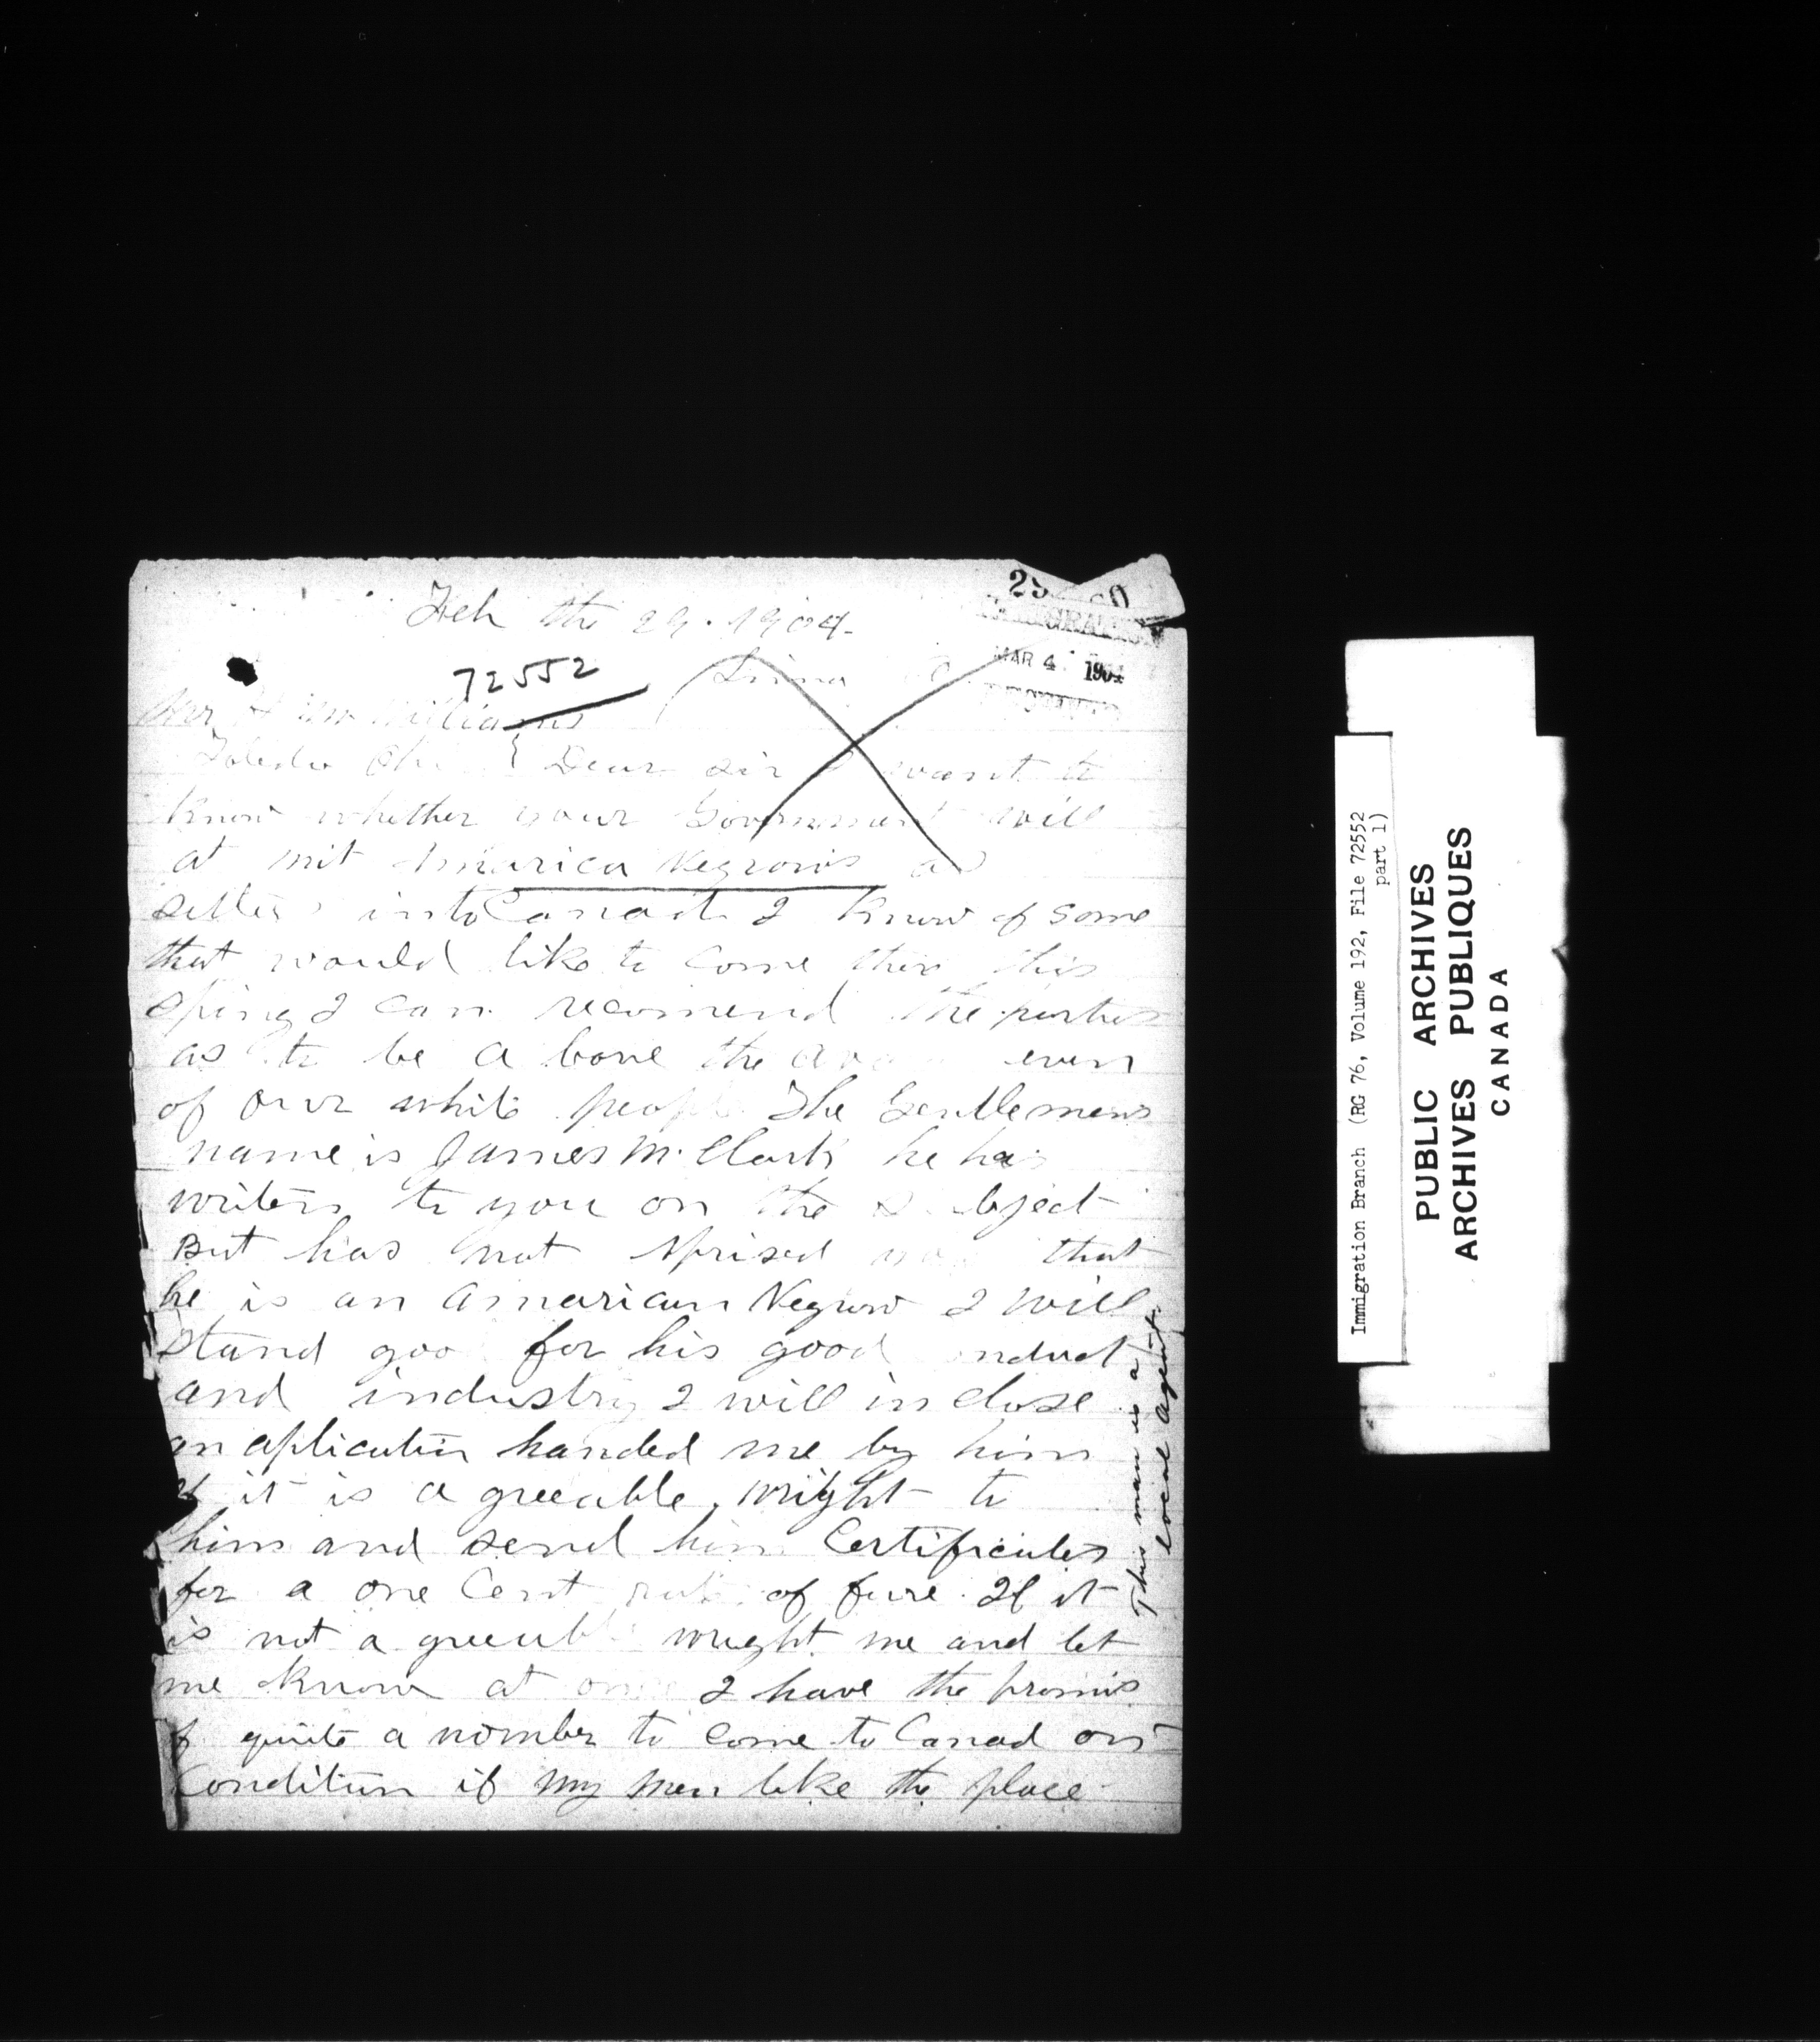 Feb the 29. 1904.
IMMIGRATION
MAR 4 1904
72552
Lima O
Mr H M Williams
Toledo Ohi } Dear sir I want to
know whether your Government will
at mit Amarica Negrows as
settles into Canada I know of some
that would like to come ther this
sping I can recomend the parties
as to be a bove the even
of our white people The Gentlemens
name is James M. Clark he has
writen to you on the subject
But has not aprised you that
he is an Amarican Negrow I will
stand good for his good conduct
and industry I will in close
an aplication handed me by him
If it is a greeable, wright to
him and send him Certificates
for a one Cent rate of fare. If it
is not a greeabl wright me and let
me know at once I have the promis
of quite a nomber to come to Canad on
Condition if my men like the place
This man is a
local agent.
Immigration Branch (RG 76, Volume 192, File 72552
part 1)
PUBLIC ARCHIVES
ARCHIVES PUBLIQUES
CANADA